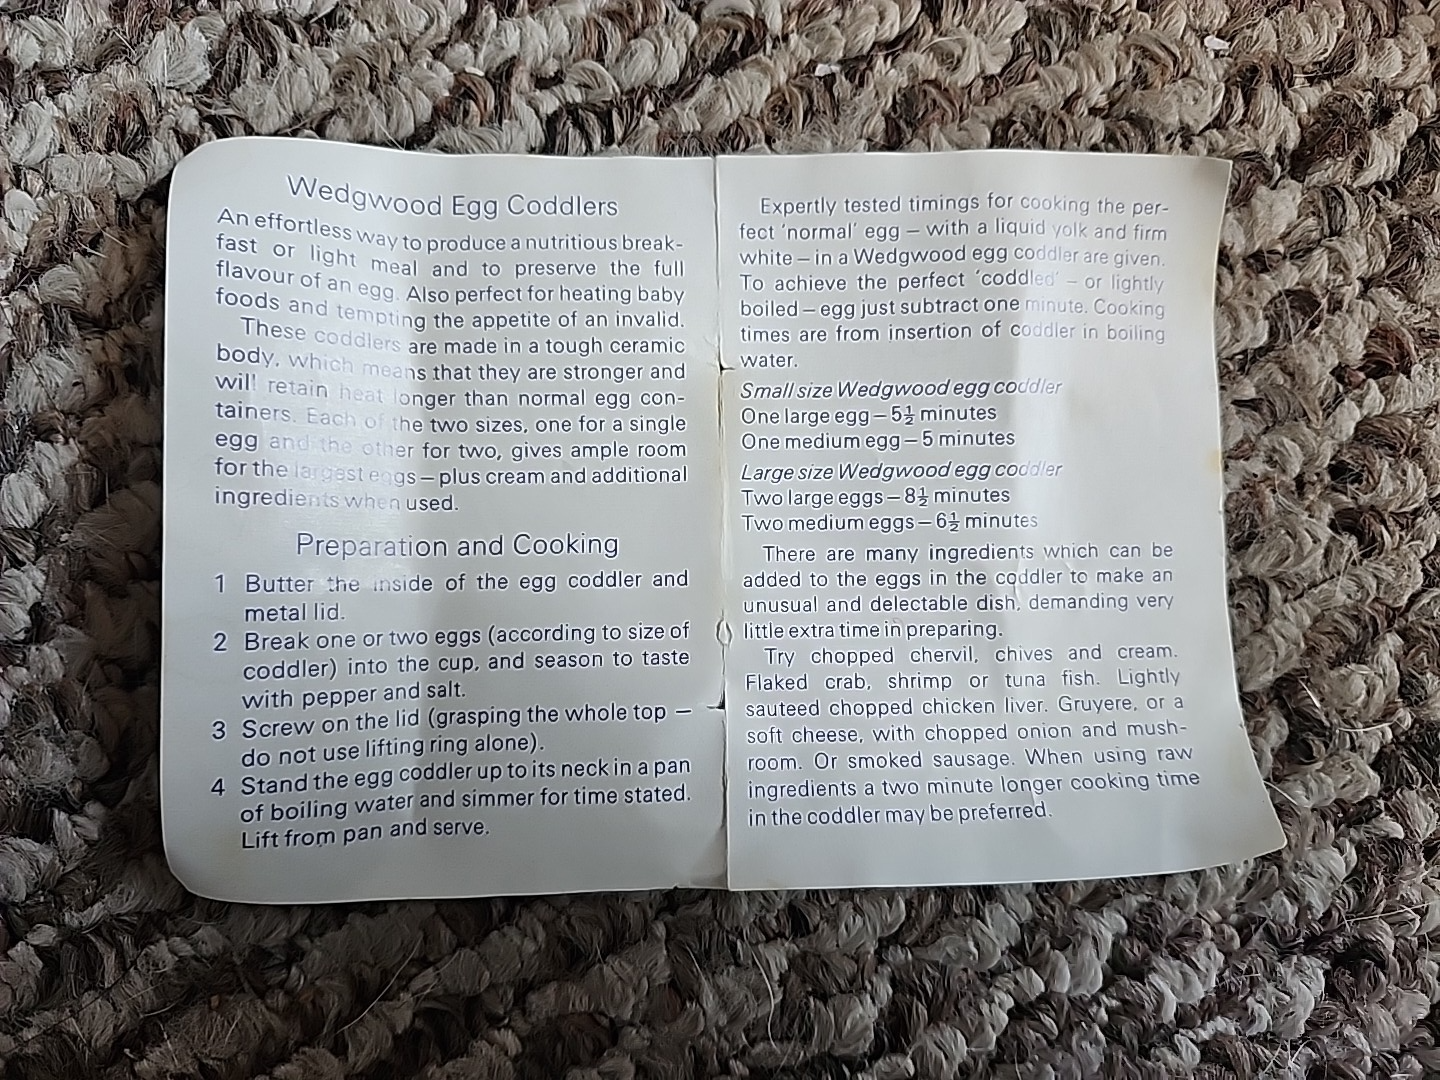 Wedgwood Egg Coddlers
An effortless way to produce a nutritious break-
fast or light meal and to preserve the full
flavour of an egg. Also perfect for heating baby
foods and tempting the appetite of an invalid.
These coddlers are made in a tough ceramic
body, which means that they are stronger and
will retain heat longer than normal egg con-
tainers. Each of the two sizes, one for a single
egg and the other for two, gives ample room
for the largest eggs – plus cream and additional
ingredients when used.
Preparation and Cooking
1 Butter the inside of the egg coddler and
metal lid.
2 Break one or two eggs (according to size of
coddler) into the cup, and season to taste
with pepper and salt.
3 Screw on the lid (grasping the whole top –
do not use lifting ring alone).
4 Stand the egg coddler up to its neck in a pan
of boiling water and simmer for time stated.
Lift from pan and serve.
Expertly tested timings for cooking the per-
fect 'normal' egg – with a liquid yolk and firm
white – in a Wedgwood egg coddler are given.
To achieve the perfect 'coddled' – or lightly
boiled – egg just subtract one minute. Cooking
times are from insertion of coddler in boiling
water.
Small size Wedgwood egg coddler
One large egg – 5½ minutes
One medium egg – 5 minutes
Large size Wedgwood egg coddler
Two large eggs – 8½ minutes
Two medium eggs – 6½ minutes
There are many ingredients which can be
added to the eggs in the coddler to make an
unusual and delectable dish, demanding very
little extra time in preparing.
Try chopped chervil, chives and cream.
Flaked crab, shrimp or tuna fish. Lightly
sauteed chopped chicken liver. Gruyere, or a
soft cheese, with chopped onion and mush-
room. Or smoked sausage. When using raw
ingredients a two minute longer cooking time
in the coddler may be preferred.